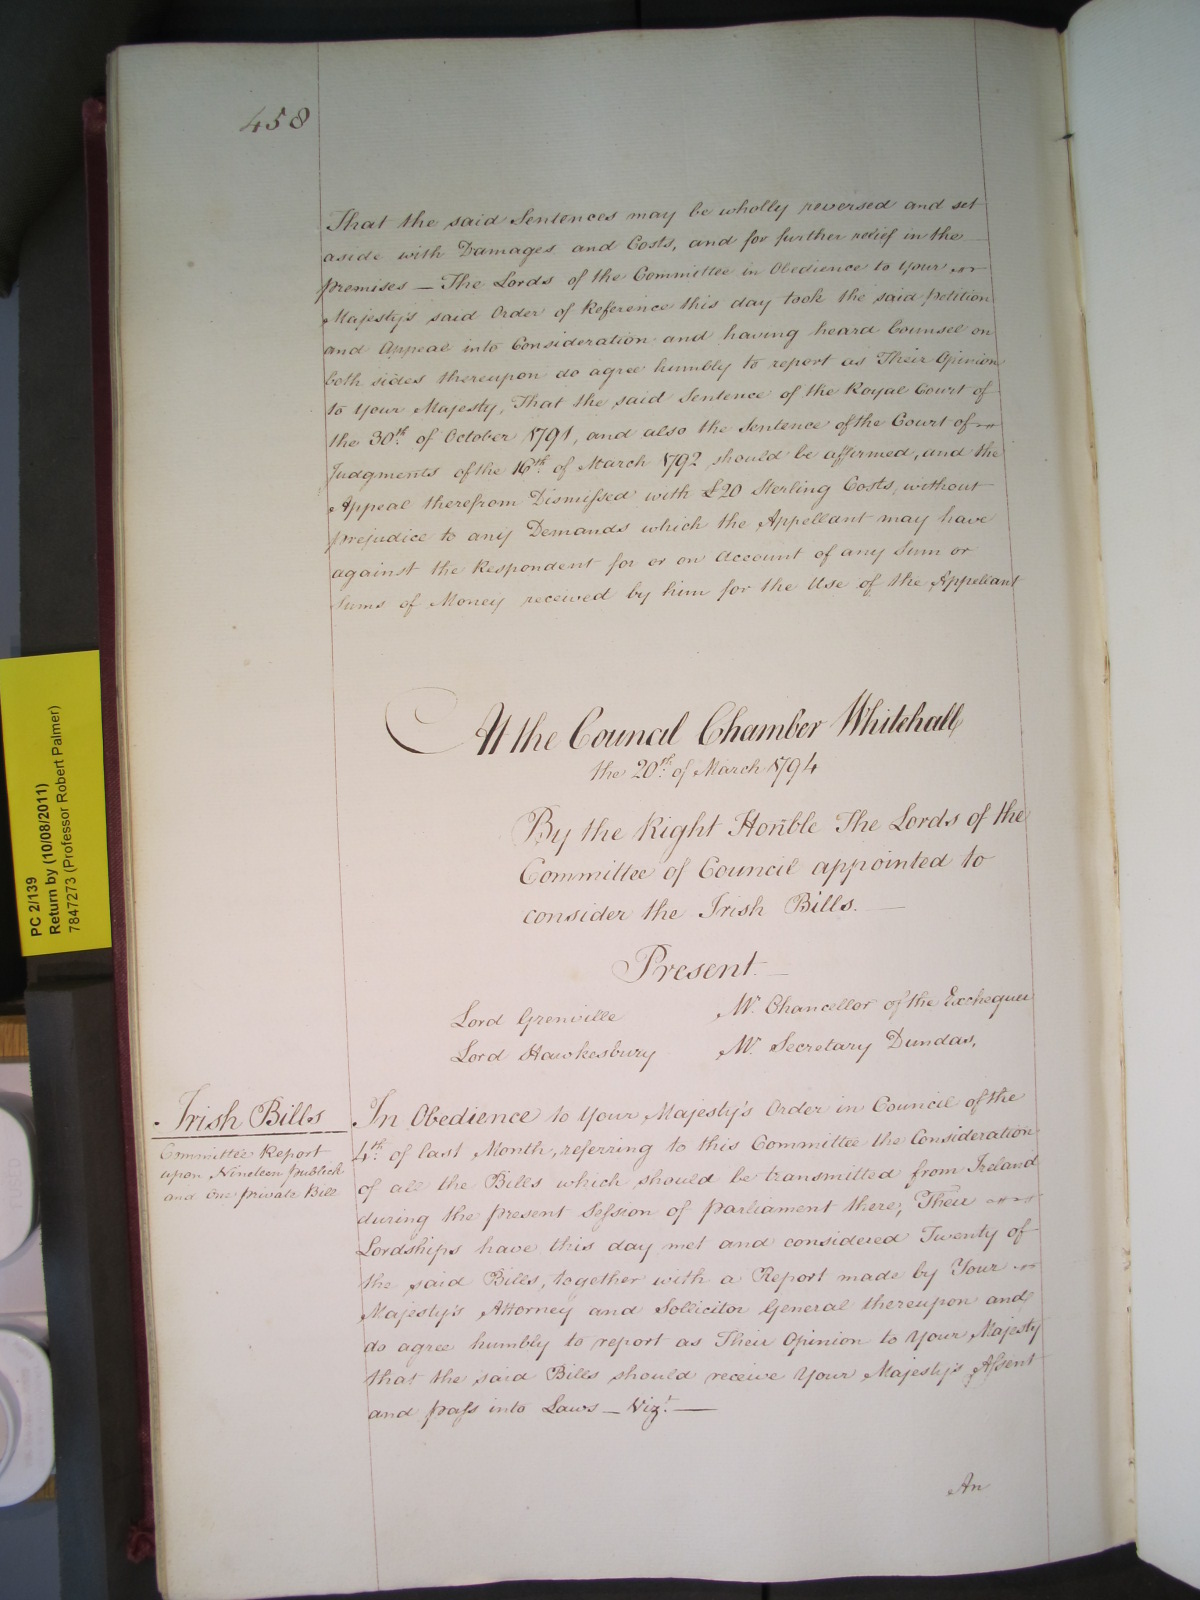 458
That the said Sentences may be wholly reversed and set
aside with Damages and Costs, and for further relief in the
premises — The Lords of the Committee in Obedience to Your
Majesty's said Order of Reference this day took the said Petition
and Appeal into Consideration and having heard Counsel on
both sides thereupon do agree humbly to report as Their Opinion
to Your Majesty, That the said Sentence of the Royal Court of
the 30th of October 1791, and also the Sentence of the Court of
Judgments of the 16th of March 1792 should be affirmed, and the
Appeal therefrom Dismissed with £20 Sterling Costs, without
prejudice to any Demands which the Appellant may have
against the Respondent for or on Account of any Sum or
Sums of Money received by him for the Use of the Appellant
At the Council Chamber Whitehall
the 20th of March 1794
By the Right Honble The Lords of the
Committee of Council appointed to
consider the Irish Bills. —
Present —
Lord Grenville Mr. Chancellor of the Exchequer
Lord Hawkesbury Mr. Secretary Dundas,
Irish Bills
Committee Report
upon Nineteen publick
and One private Bill
In Obedience to Your Majesty's Order in Council of the
4th of last Month, referring to this Committee the Consideration
of all the Bills which should be transmitted from Ireland
during the present Session of Parliament there, Their
Lordships have this day met and considered Twenty of
the said Bills, together with a Report made by Your
Majesty's Attorney and Sollicitor General thereupon and
do agree humbly to report as Their Opinion to Your Majesty
that the said Bills should receive Your Majesty's Assent
and pass into Laws — Vizt. —
An
PC 2/139
Return by (10/08/2011)
7847273 (Professor Robert Palmer)